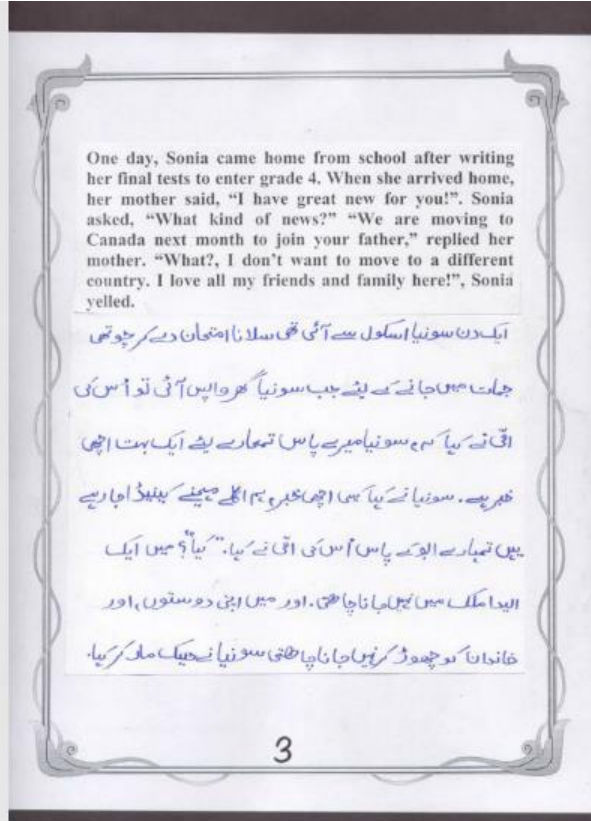 One day, Sonia came home from school after writing
her final tests to enter grade 4. When she arrived home,
her mother said, “I have great new for you!”. Sonia
asked, “What kind of news?” “We are moving to
Canada next month to join your father,” replied her
mother. “What?, I don’t want to move to a different
country. I love all my friends and family here!”, Sonia
yelled.
ایک دن سونیا اسکول سے آئی تھی سلانا امتحان دے کر چوتھی
جماعت میں جانے کے لیئے جب سونیا گھر واپس آئی تو اُس کی
امّی نے کہا کہ، سونیا میرے پاس تمھارے لیئے ایک بہت اچھی
خبر ہے۔ سونیا نے کہا اچھی خبر، ہم اگلے مہینے کینیڈا جا رہے
ہیں تمہارے ابو کے پاس اُس کی امّی نے کہا۔ "کیا؟ میں ایک
ملک میں نہیں جانا چاھتی۔ اور میں اپنی دوستوں، اور
خاندان کو چھوڑ کر نہیں جانا چاھتی سونیا نے مار کر کہا۔
3